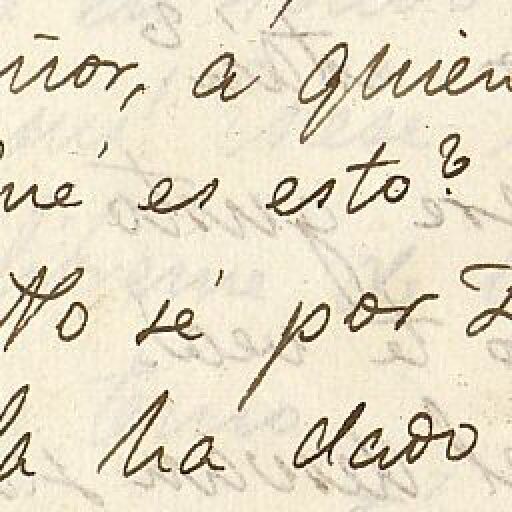 ñor, a quien
qué es esto?
No sé por
la ha dado